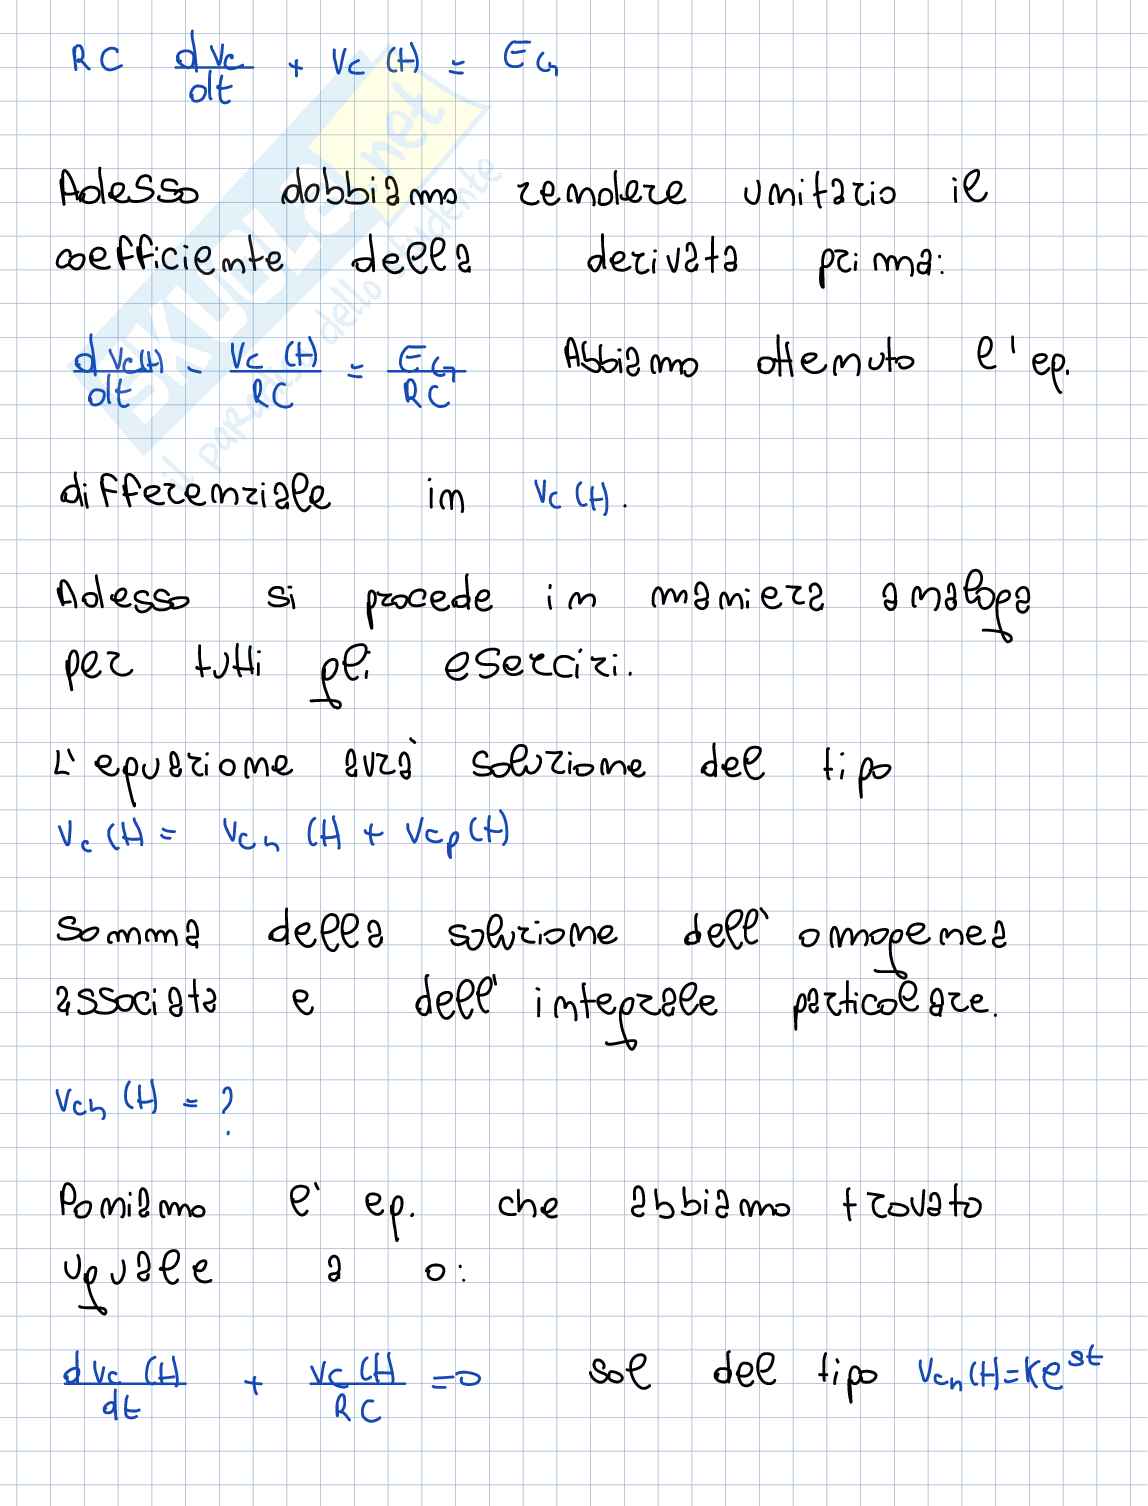 RC dvc/dt + vc(t) = EG
Adesso dobbiamo rendere unitario il
coefficiente della derivata prima:
dvc(t)/dt - vc(t)/RC = EG/RC Abbiamo ottenuto l'eq.
differenziale in vc(t).
Adesso si procede in maniera analoga
per tutti gli esercizi.
L'equazione avrà soluzione del tipo
vc(t) = vch(t) + vcp(t)
Somma della soluzione dell'omogenea
associata e dell'integrale particolare.
vch(t) = ?
Poniamo l'eq. che abbiamo trovato
uguale a 0:
dvc(t)/dt + vc(t)/RC = 0 sol del tipo vch(t)=Ke^st
SKUOLA.net
il paradiso dello studente